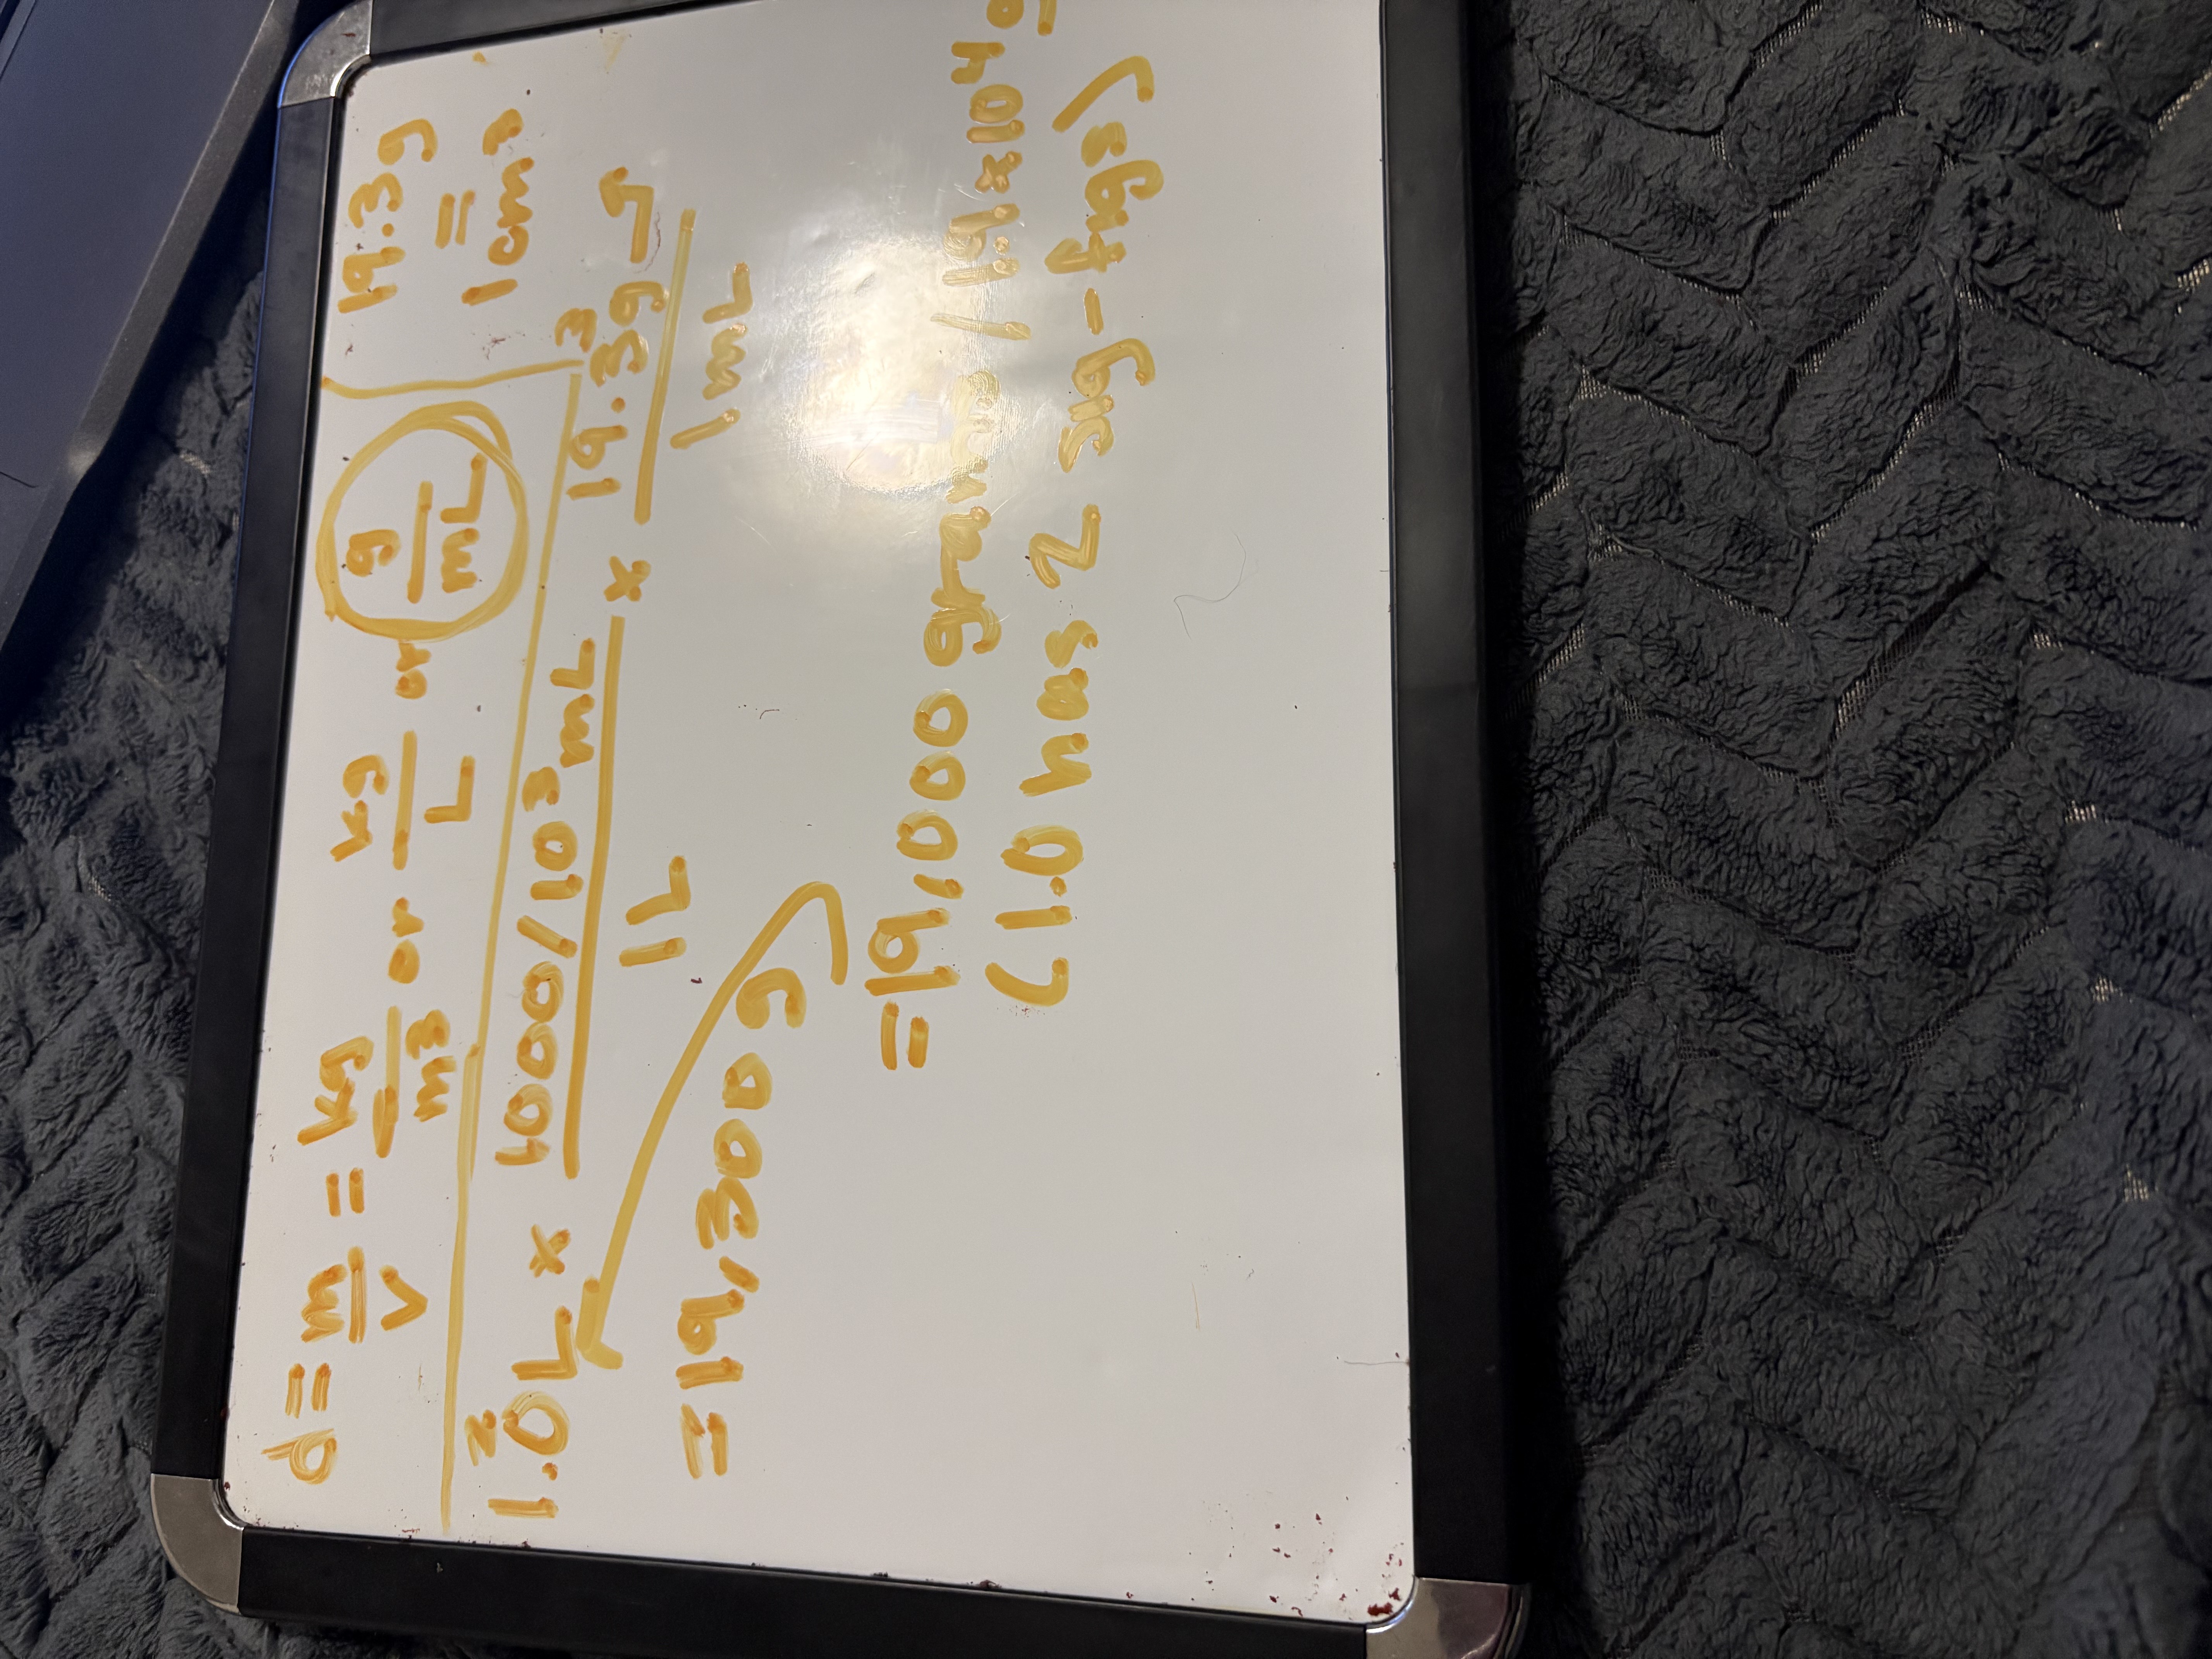 d = m/v = kg/m³ or kg/L or g/mL
19.3g = 1cm³
1.0 L x 1000/10³ mL / 1L x 19.3g / 1mL
2 3
= 19,300 g
= 19,000 grams / 1.9 x 10⁴ g
(1.0 has 2 sig-figs)